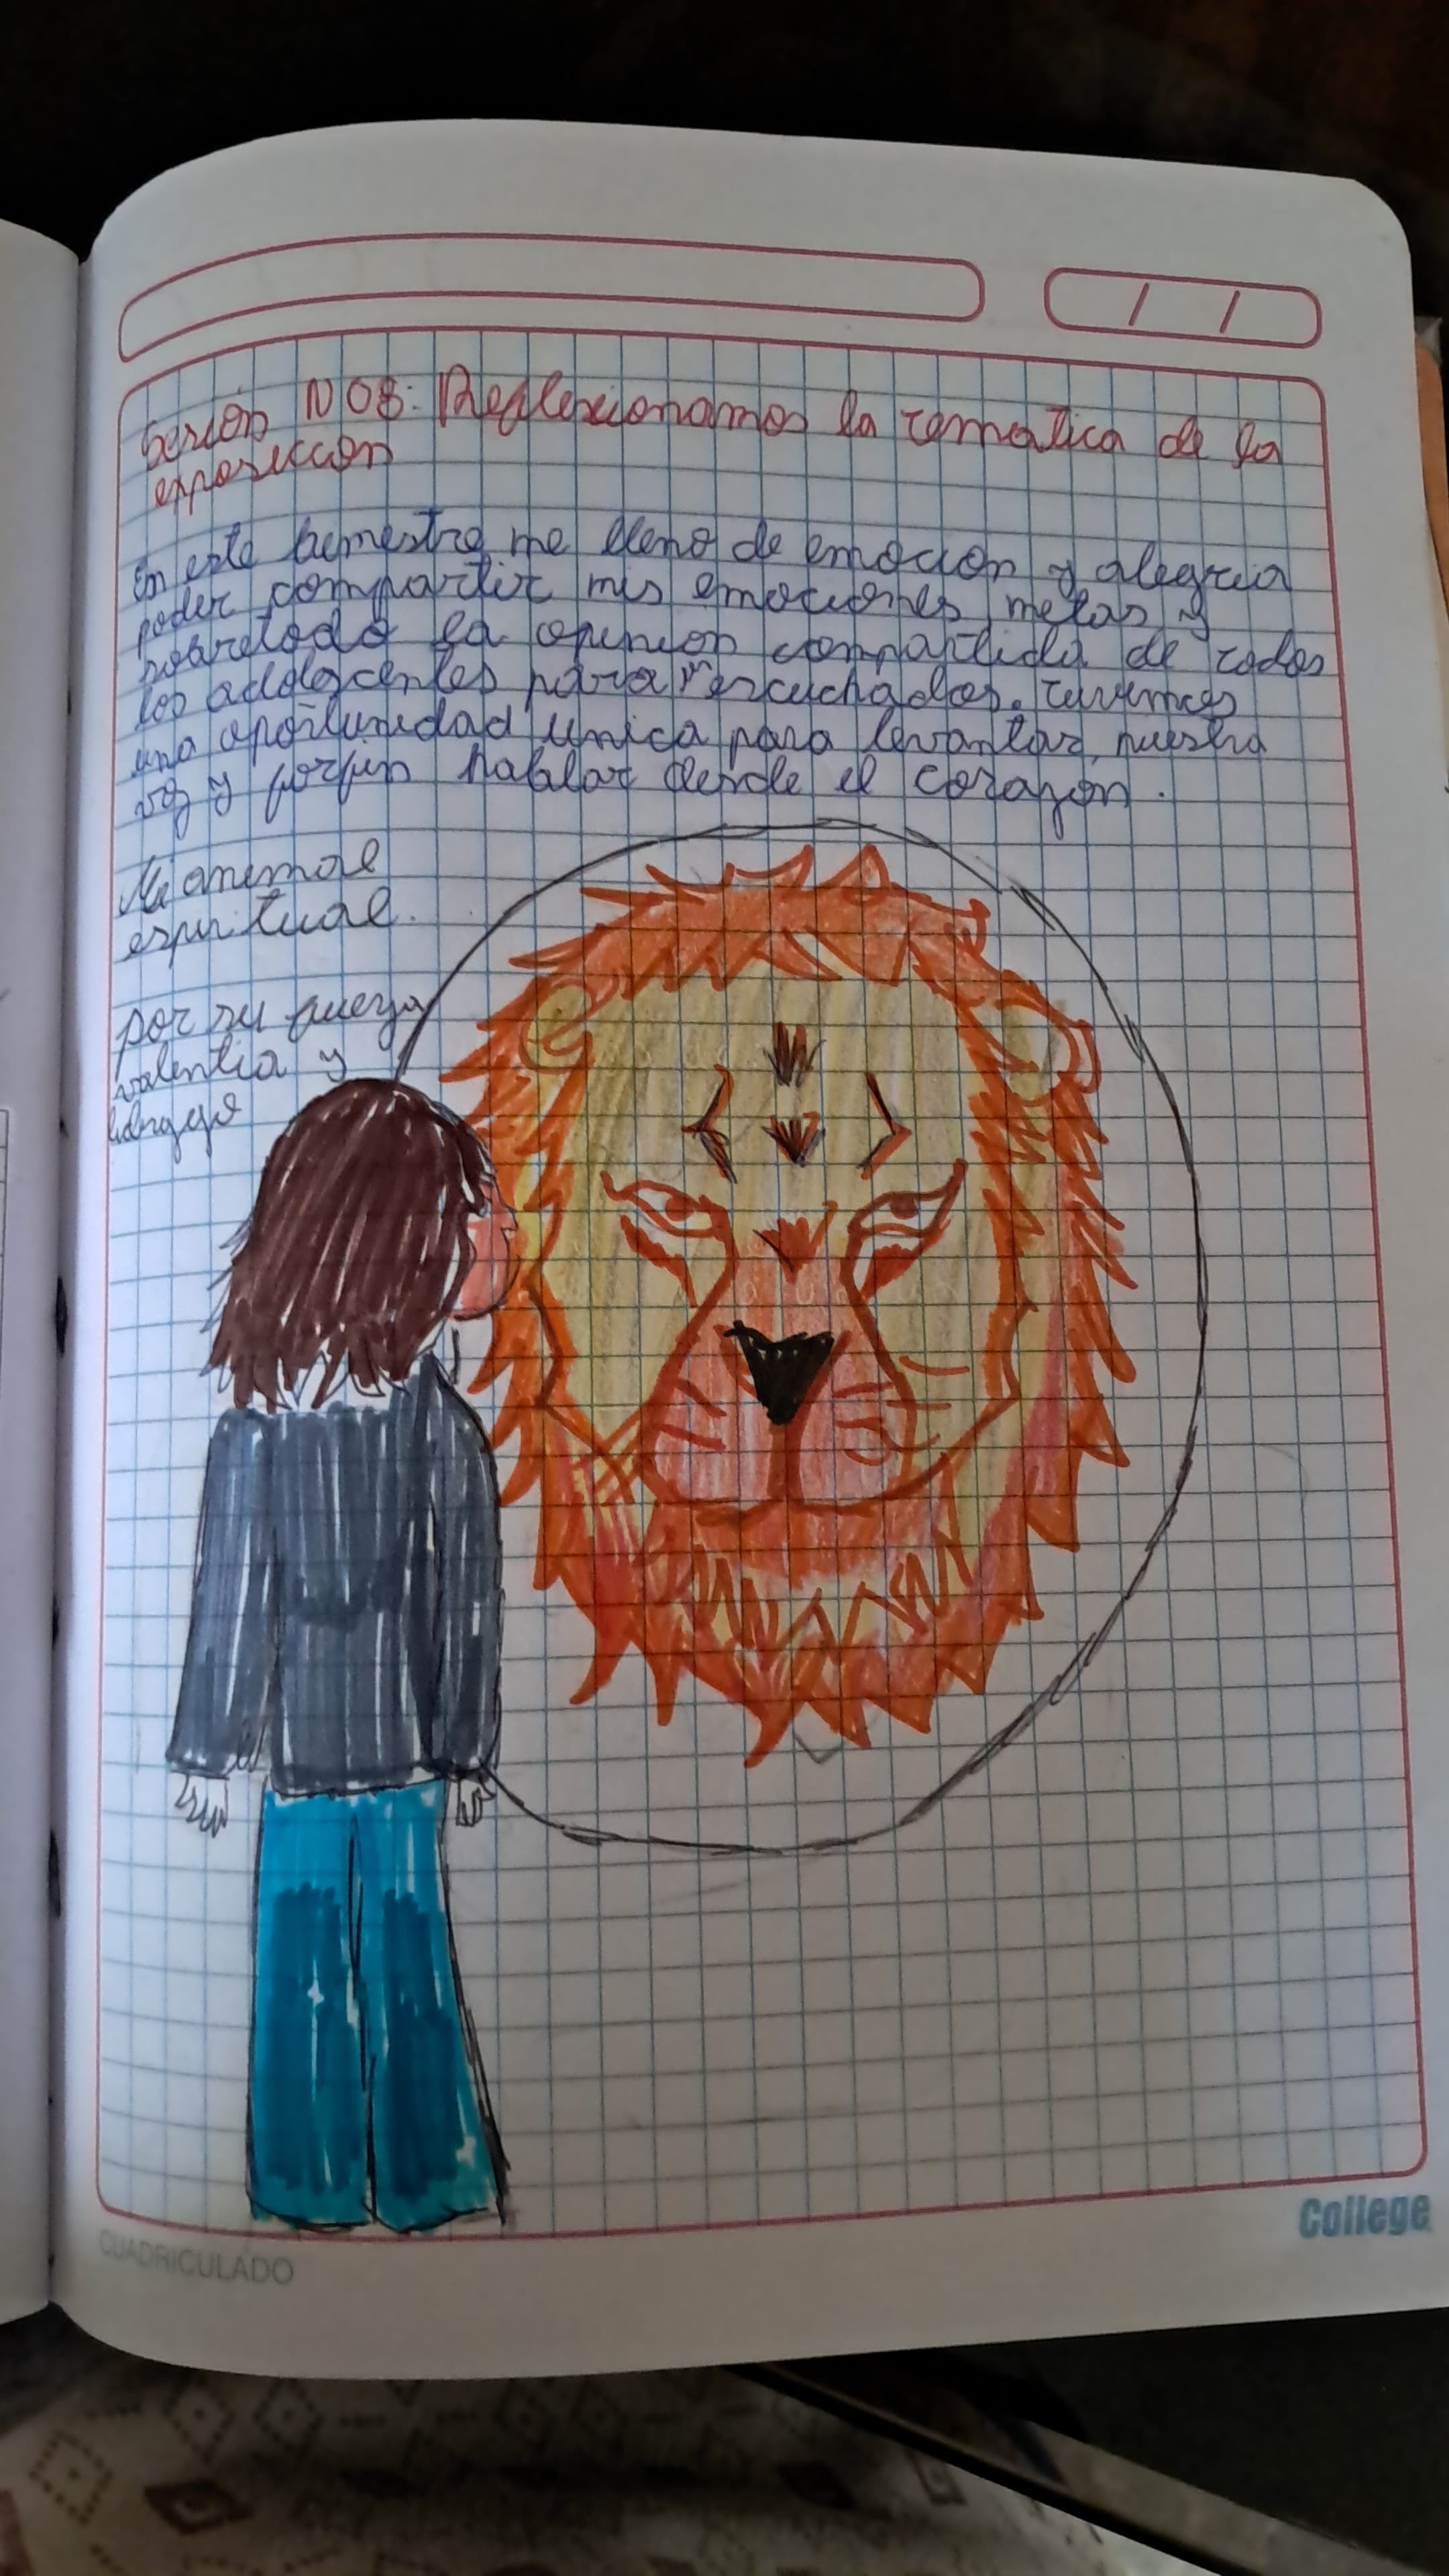 Sesión N 08: Reflexionamos la tematica de la
exposiccion
En este bimestre me lleno de emocion y alegria
poder compartir mis emociones, metas y
sobretodo la opinion compartida de todos
los adolocentes para " escuchados. tuvimos
una oportunidad unica para levantar nuestra
voz y porfin hablar desde el corazon.
Mi animal
espiritual.
por su fuerza
valentia y
CUADRICULADO
College